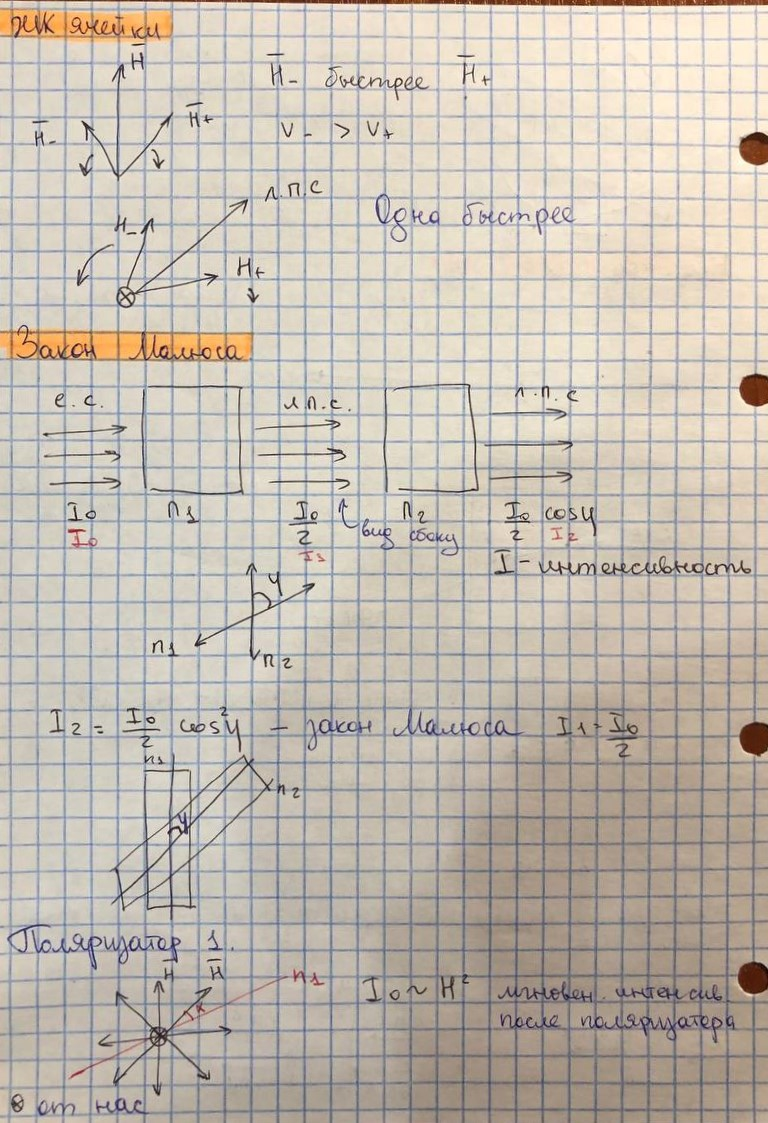 ЖК ячейки
H̅
H̅₋ быстрее H̅₊
H̅₋
H̅₊
V₋ > V₊
л.п.с
H₋
Одна быстрее
H₊
Закон Малюса
е.с.
л.п.с.
л.п.с
I₀ П₁ I₀/2 вид сбоку П₂ I₀/2 cosφ
I₀ I₁ I₂
I - интенсивность
φ
П₁
П₂
I₂ = I₀/2 cos²φ – закон Малюса I₁ = I₀/2
П₁
П₂
φ
Поляризатор 1.
H̅ H̅ П₁
α
I₀ ~ H² мгновен. интенсив.
после поляризатора
⊗ от нас